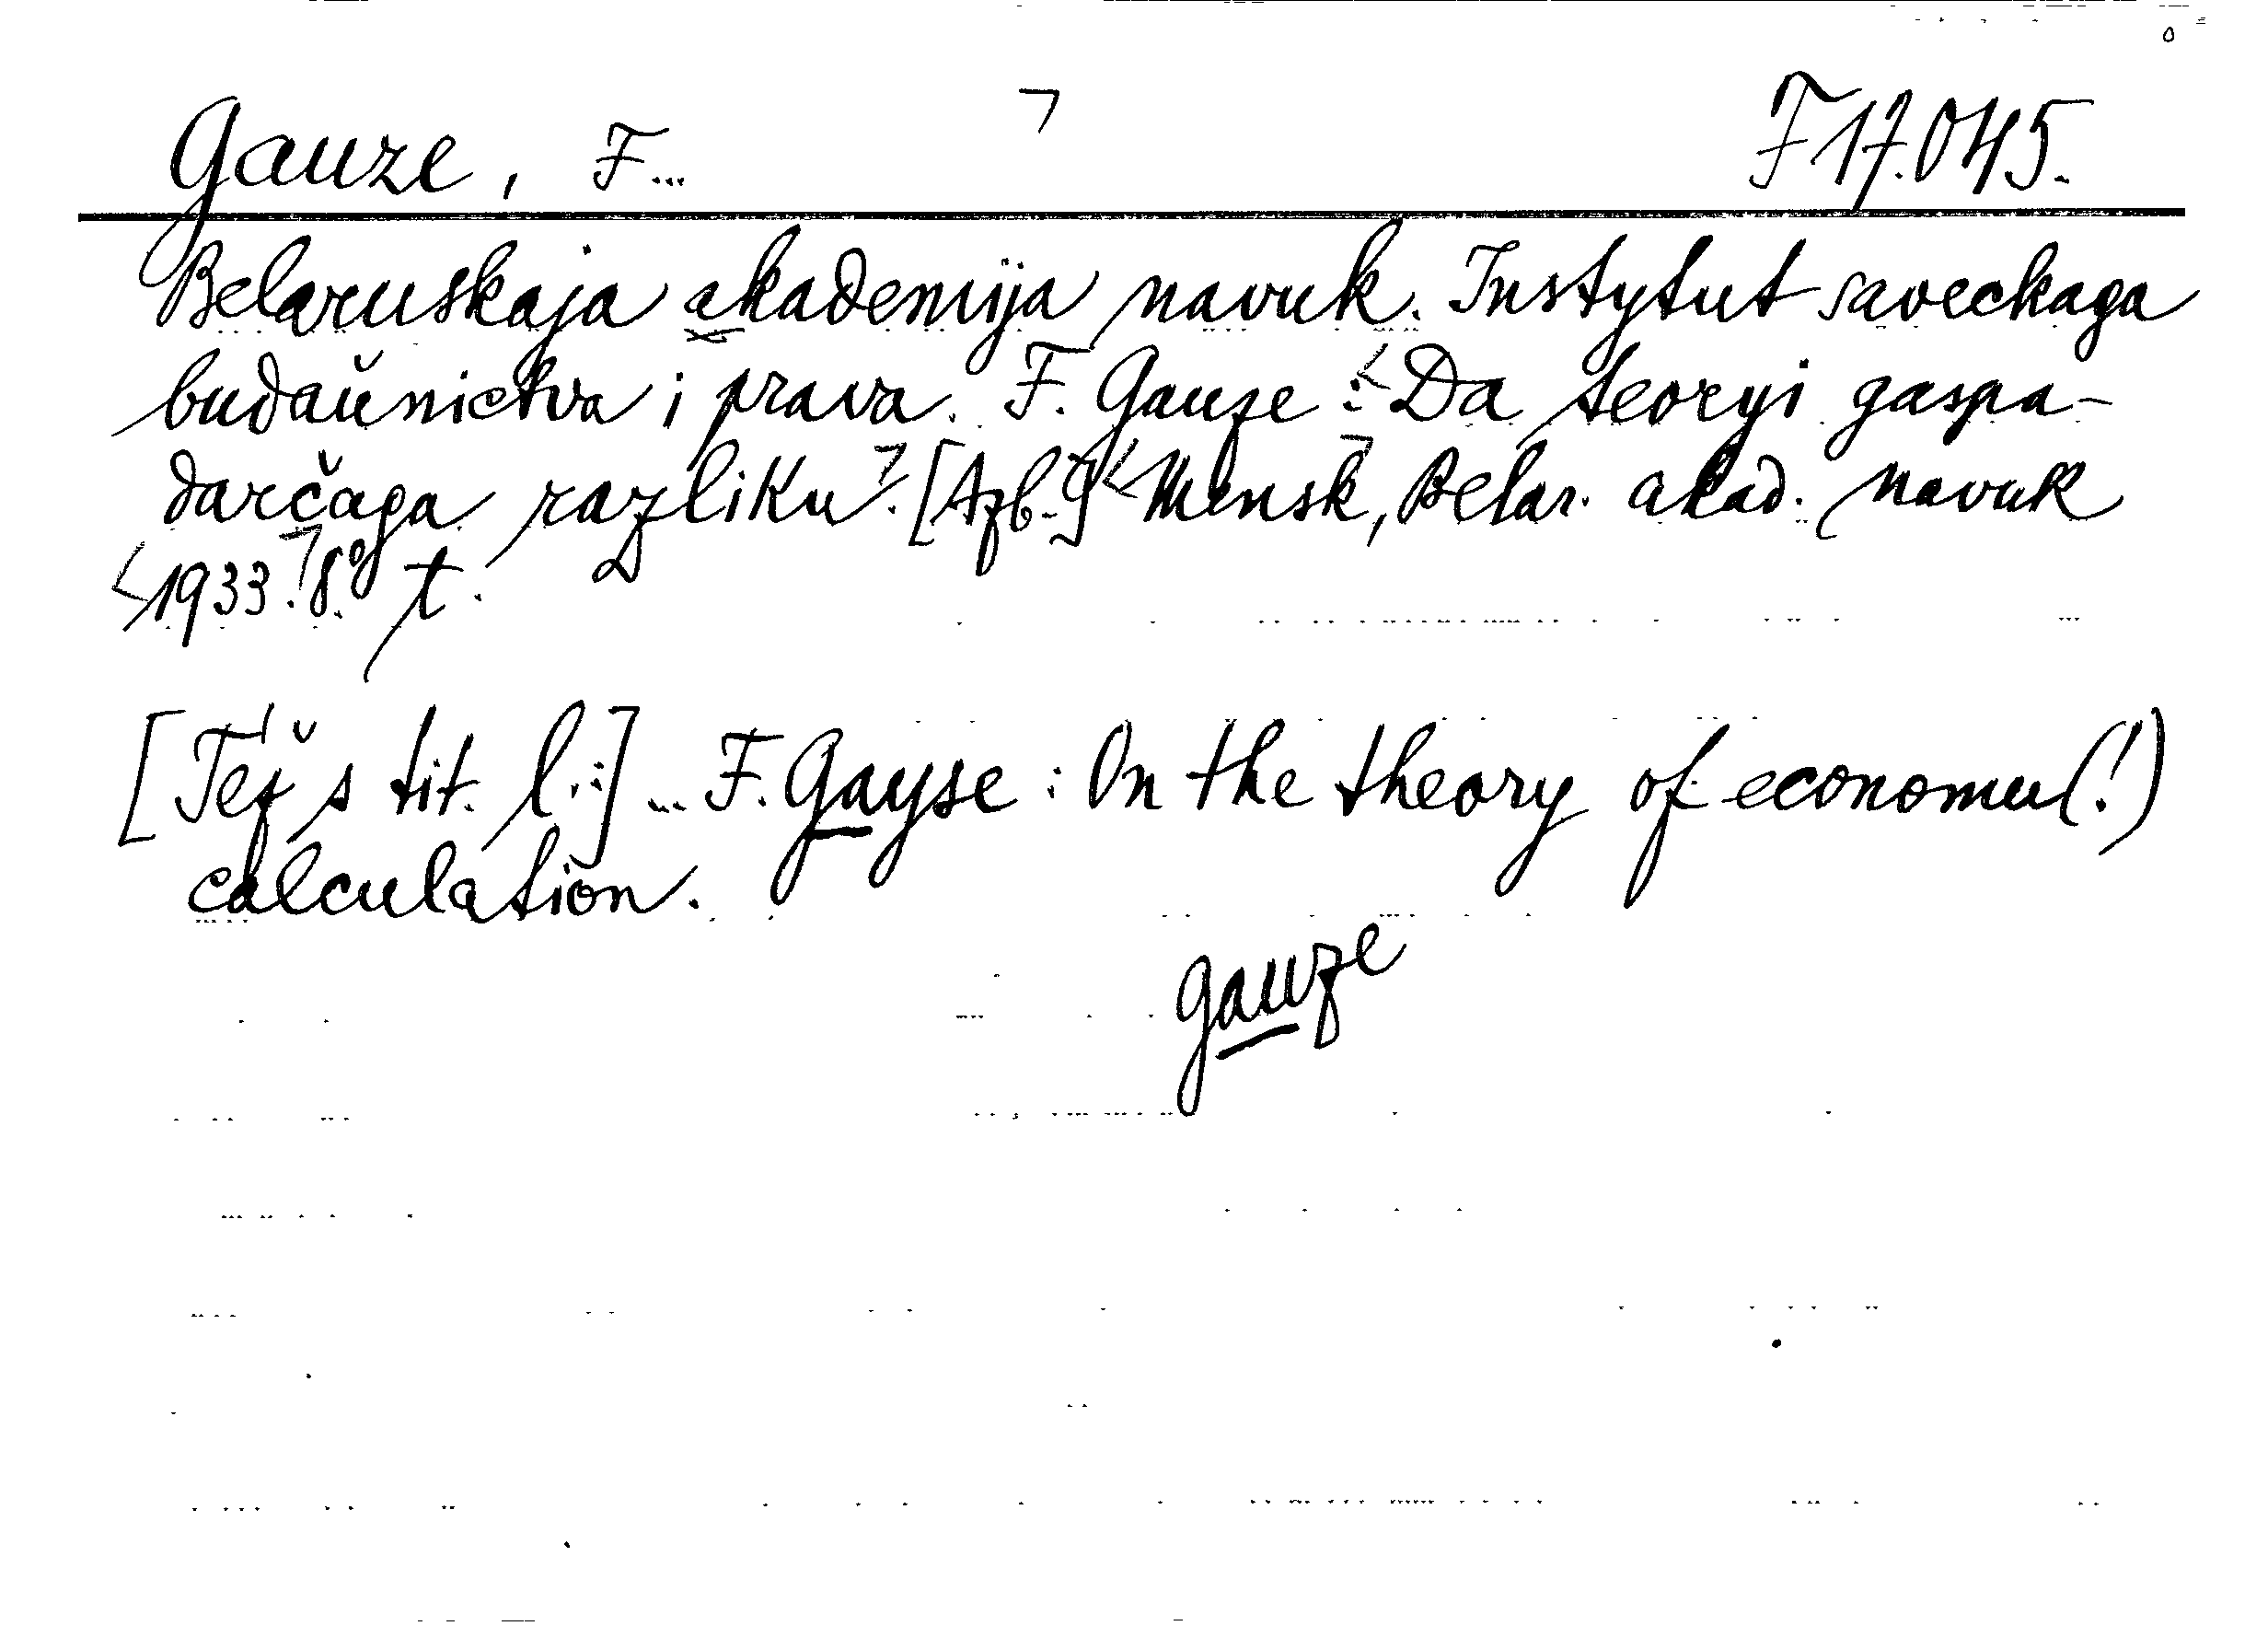 Gauze, F... F 17.045.
Belaruskaja akademija navuk. Instytut saveckaga
budaŭnictva i prava. F. Gauze : Da teoryi gaspa-
darčaga razliku. [Azb.] Mensk, Belar. akad. navuk
1933. 8° t.
[Též s tit. l.:] ... F. Gayse : On the theory of economu(!)
calculation.
Gauze